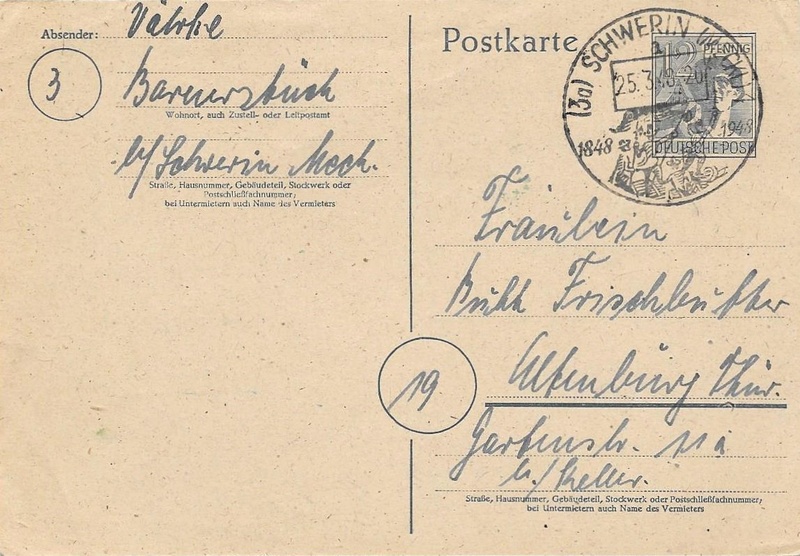 Absender:
3
Barnerstück
Wohnort, auch Zustell- oder Leitpostamt
b/Schwerin Meck.
Straße, Hausnummer, Gebäudeteil, Stockwerk oder
Postschließfachnummer;
bei Untermietern auch Name des Vermieters
Postkarte
12 PFENNIG
DEUTSCHE POST
(3a) SCHWERIN
25.3.48-20
1848 1948
Fräulein
Ruth Frischbutter
19
Altenburg Thür.
Gartenstr. 11a
b/Keller.
Straße, Hausnummer, Gebäudeteil, Stockwerk oder Postschließfachnummer;
bei Untermietern auch Name des Vermieters